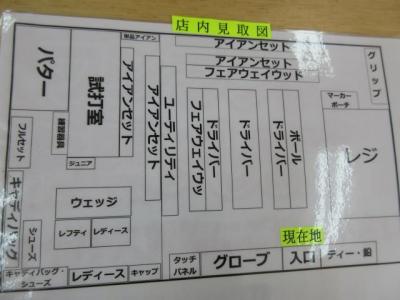 店内見取図
アイアンセット
アイアンセット
フェアウェイウッド
グリップ
パター
単品アイアン
試打室
アイアンセット
アイアンセット
ユーティリティ
フェアウェイウッ
ドライバー
ドライバー
ドライバー
ボール
マーカー
ポーチ
レジ
フルセット
練習器具
ジュニア
キャディバッグ
シューズ
ウェッジ
レフティ
レディース
現在地
キャディバッグ・
シューズ
レディース
キャップ
タッチ
パネル
グローブ
入口
ティー・鉛